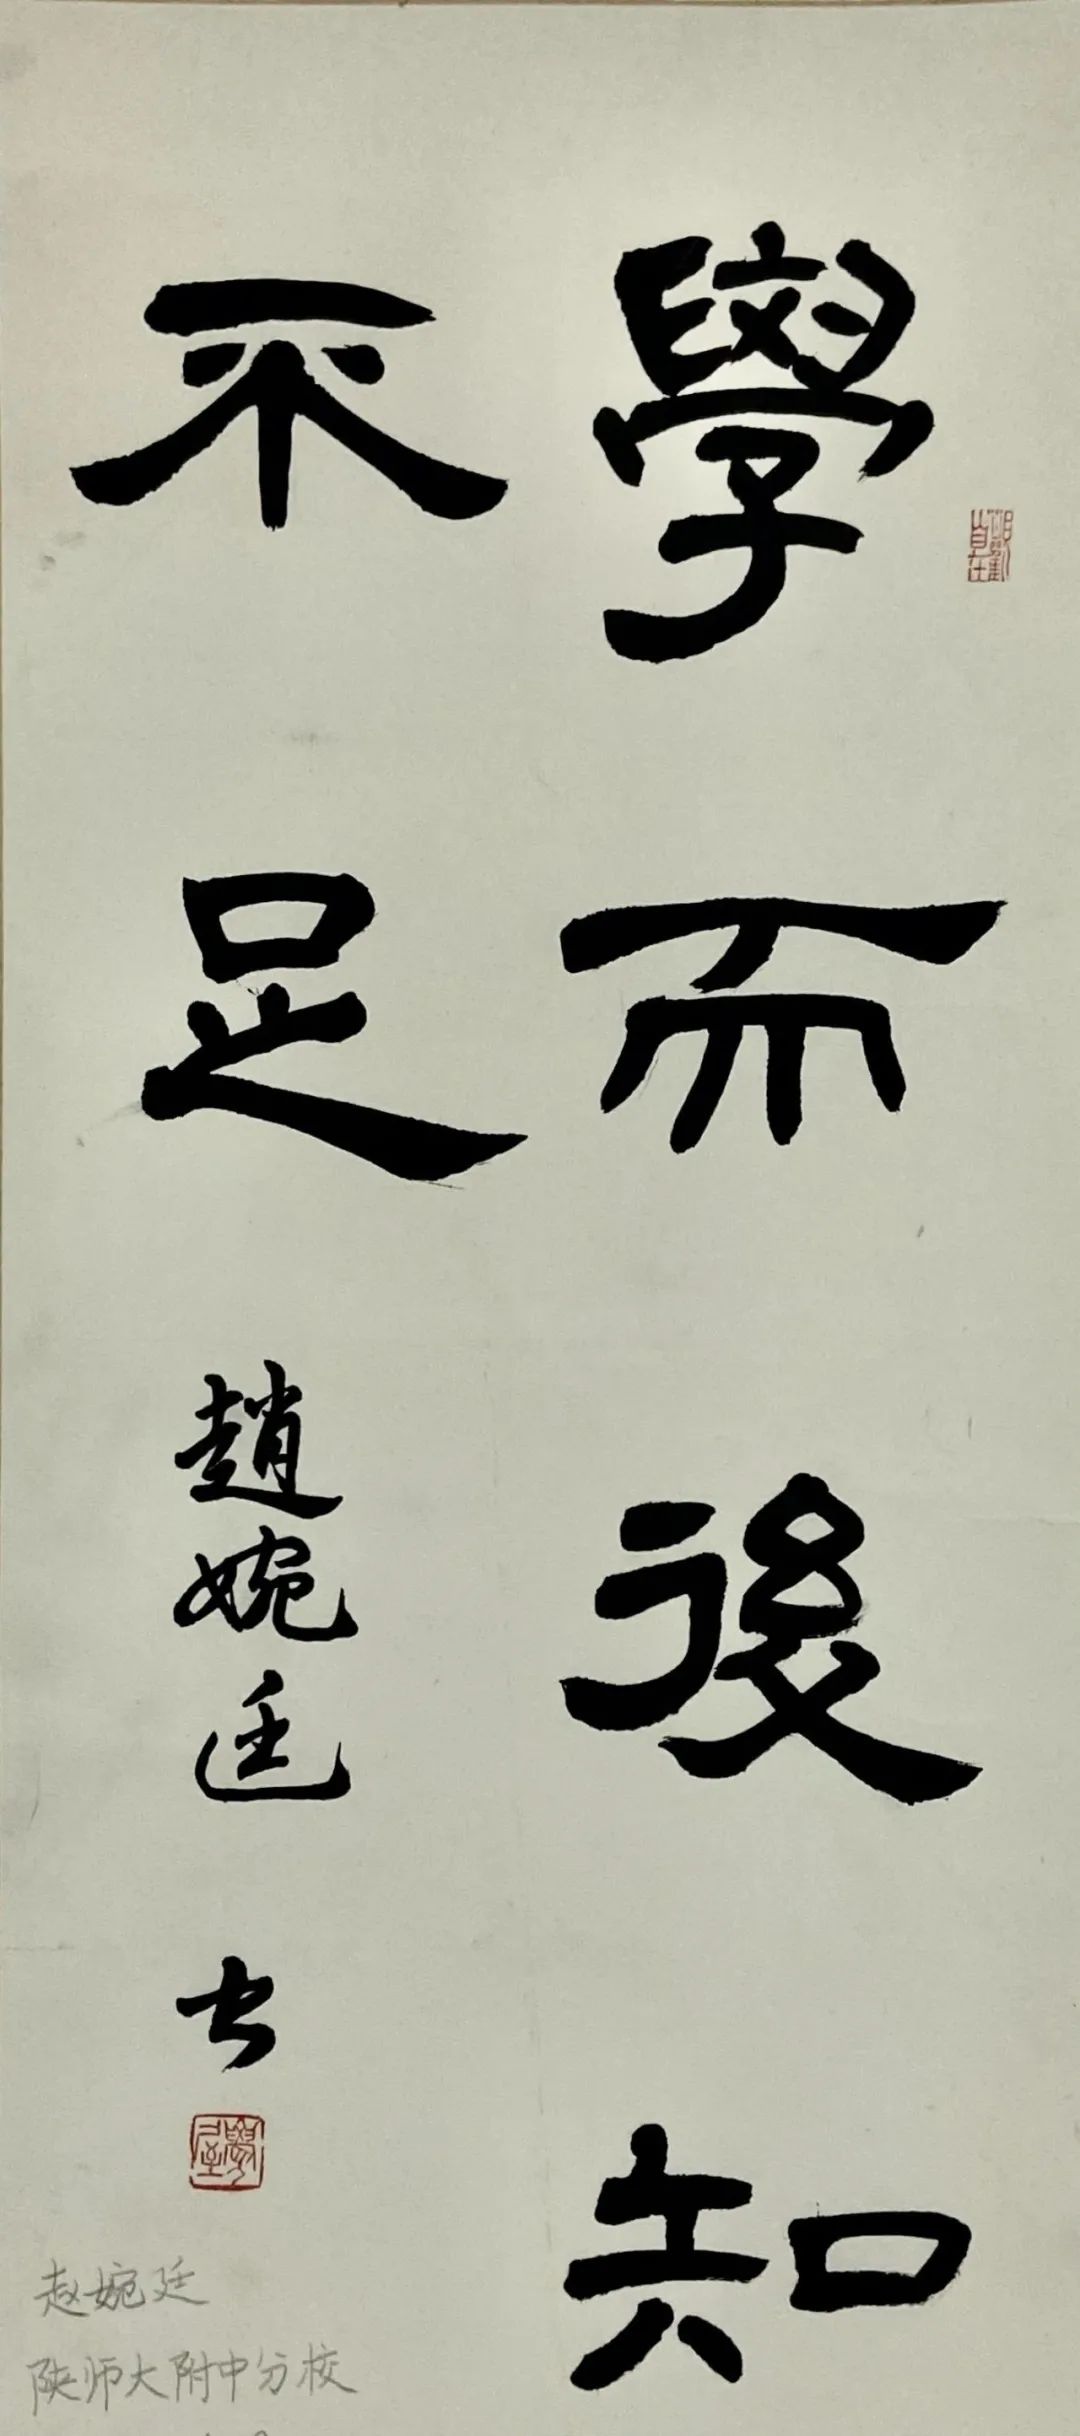 學而後知
不足
趙婉廷書
赵婉廷
陕师大附中分校